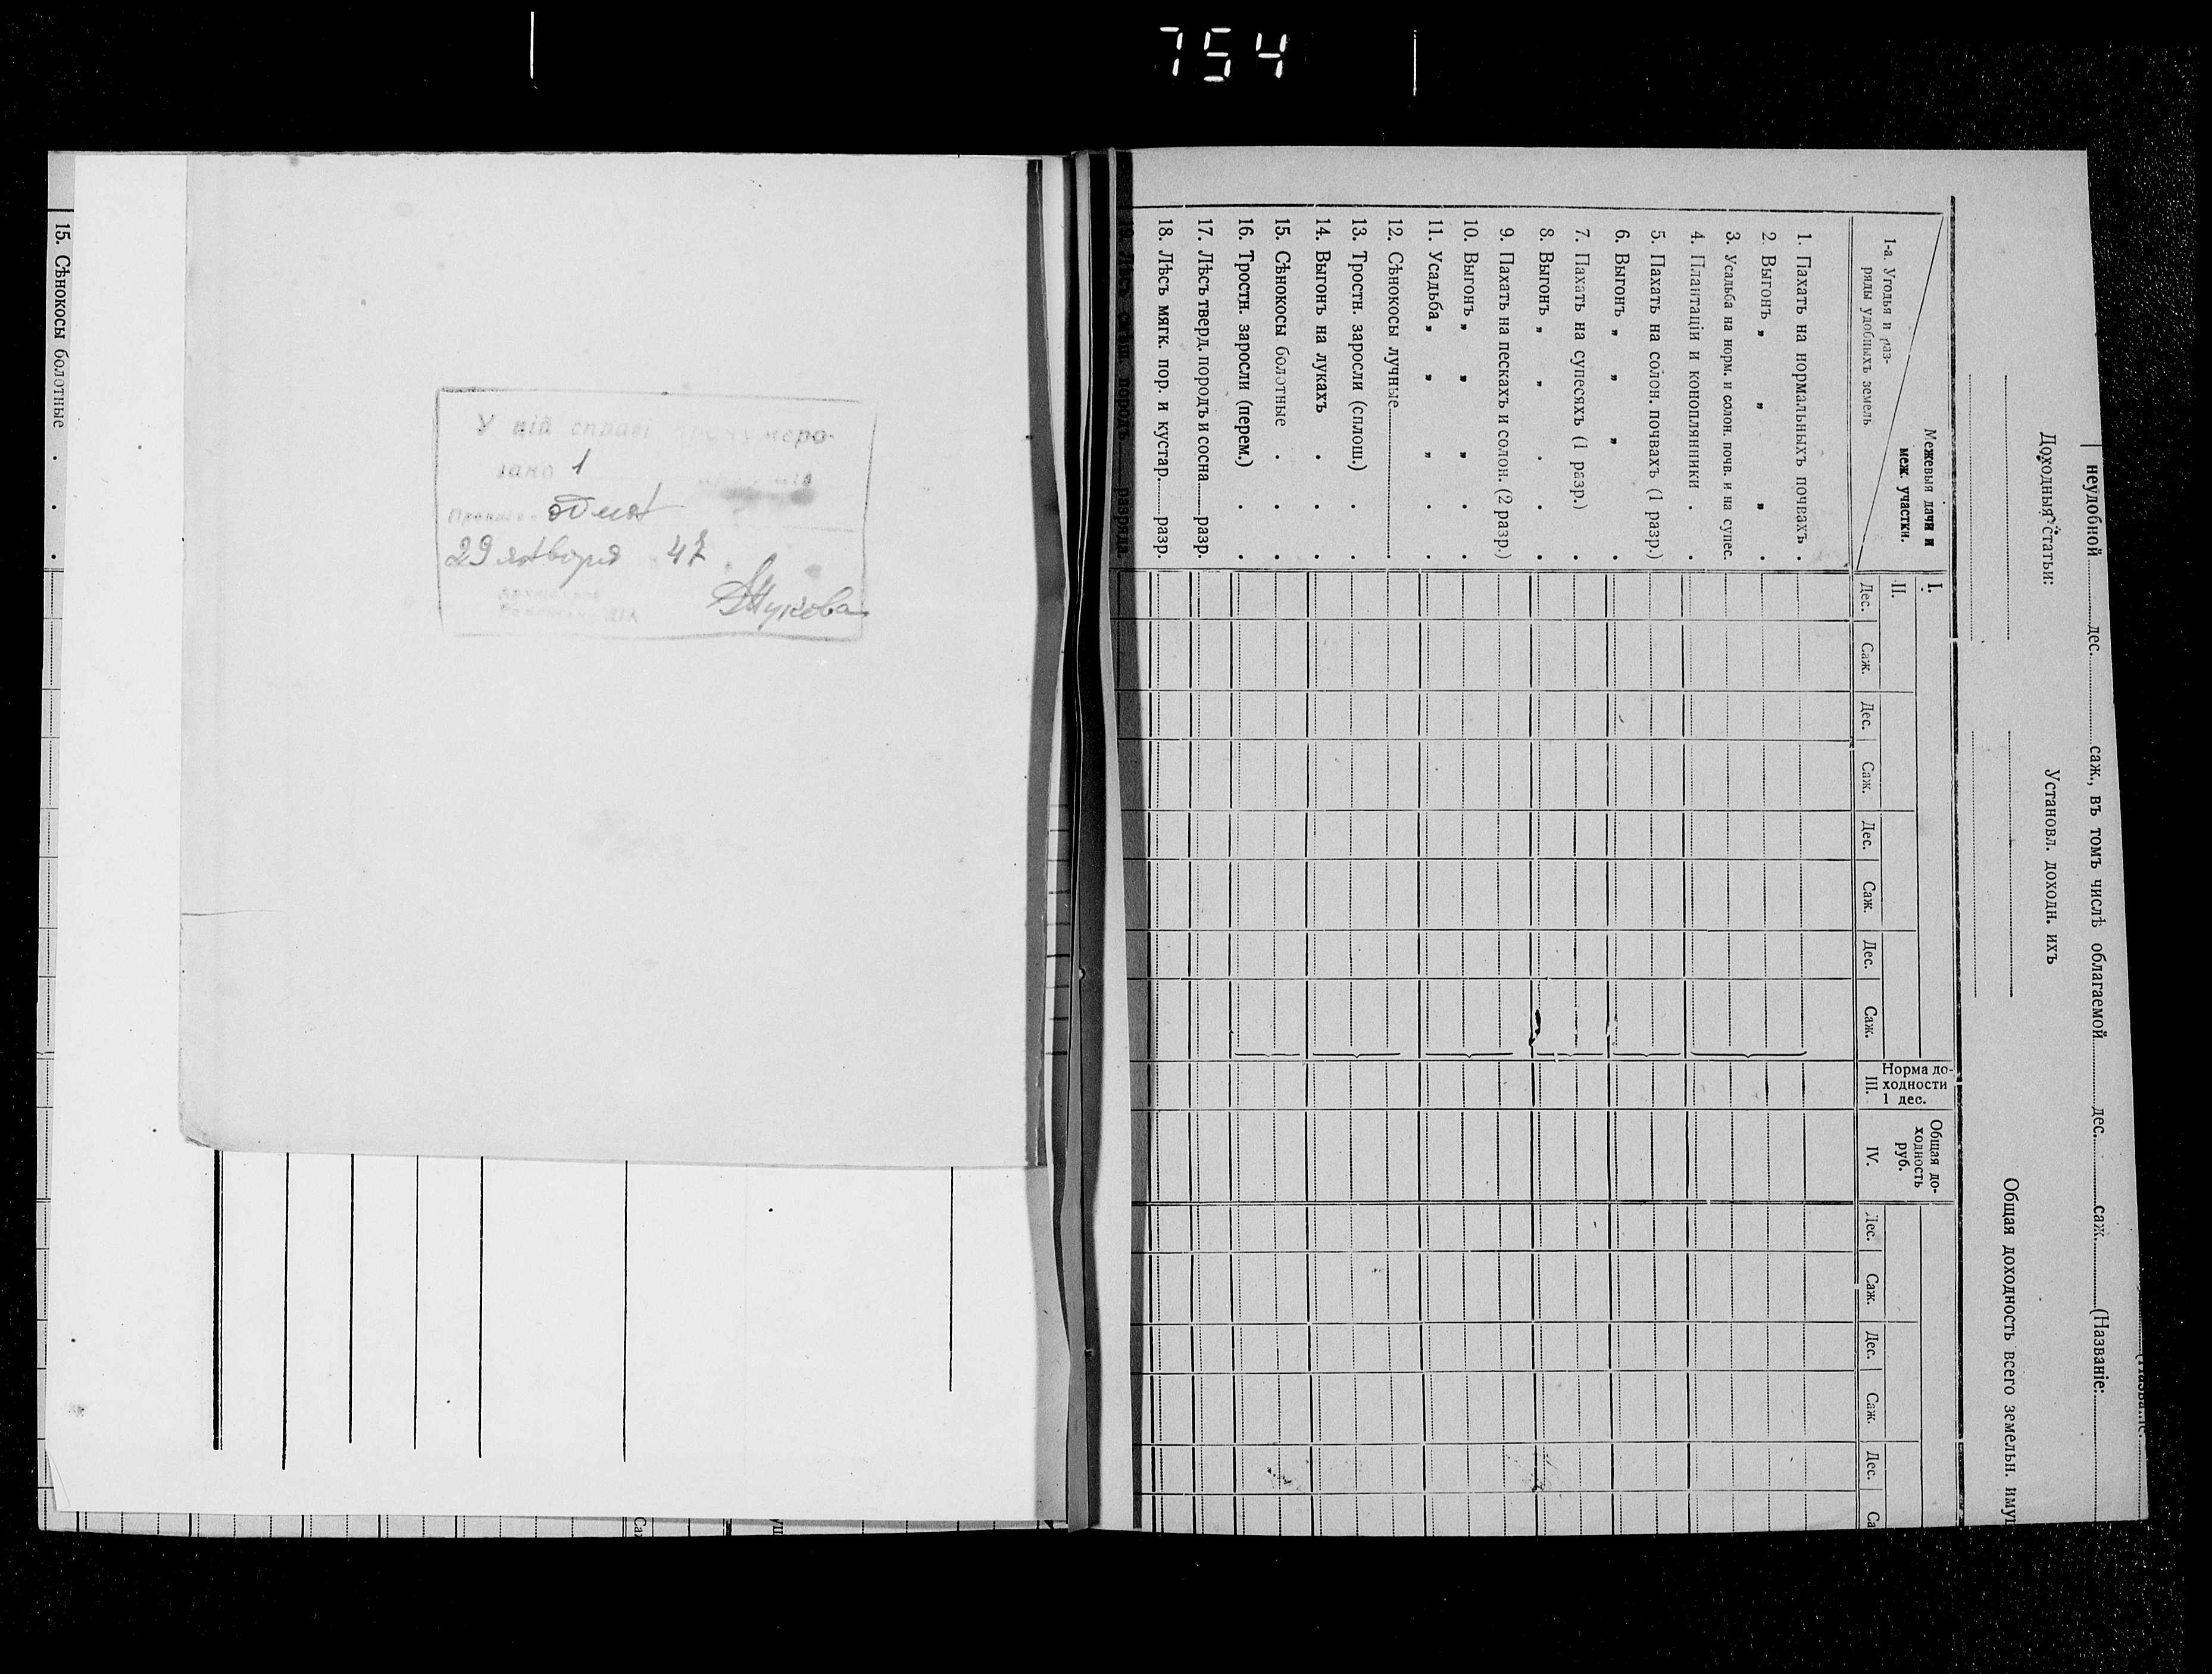 754
15. Сѣнокосы болотные . . .
У цій справі пронумеро-
вано 1
29 января 47
неудобной дес. саж., въ томъ числѣ облагаемой дес. саж. (Названіе:
Доходныя статьи: Установл. доходн. ихъ
Общая доходность всего земельн. иму
Межевыя дачи и
меж. участки.
1-а. Угодья и раз-
ряды удобныхъ земель
I.
II.
Норма до-
ходности
1 дес.
III.
Общая до-
ходность
руб.
IV.
Дес. Саж. Дес. Саж. Дес. Саж. Дес. Саж. Дес. Саж. Дес. Саж. Дес. Са
1. Пахать на нормальныхъ почвахъ .
2. Выгонъ „ „ „ .
3. Усадьба на норм. и солон. почв. и на супес.
4. Плантаціи и коноплянники . .
5. Пахать на солон. почвахъ (1 разр.)
6. Выгонъ „ „ „ .
7. Пахать на супесяхъ (1 разр.) .
8. Выгонъ „ „ . . .
9. Пахать на пескахъ и солон. (2 разр.)
10. Выгонъ „ „ „ . .
11. Усадьба „ „ „ . .
12. Сѣнокосы лучные
13. Тростн. заросли (сплош.) . .
14. Выгонъ на лукахъ . . .
15. Сѣнокосы болотные . . .
16. Тростн. заросли (перем.) . .
17. Лѣсъ тверд. породъ и сосна разр.
18. Лѣсъ мягк. пор. и кустар. разр.
19. Лѣсъ смѣш. породъ разряда